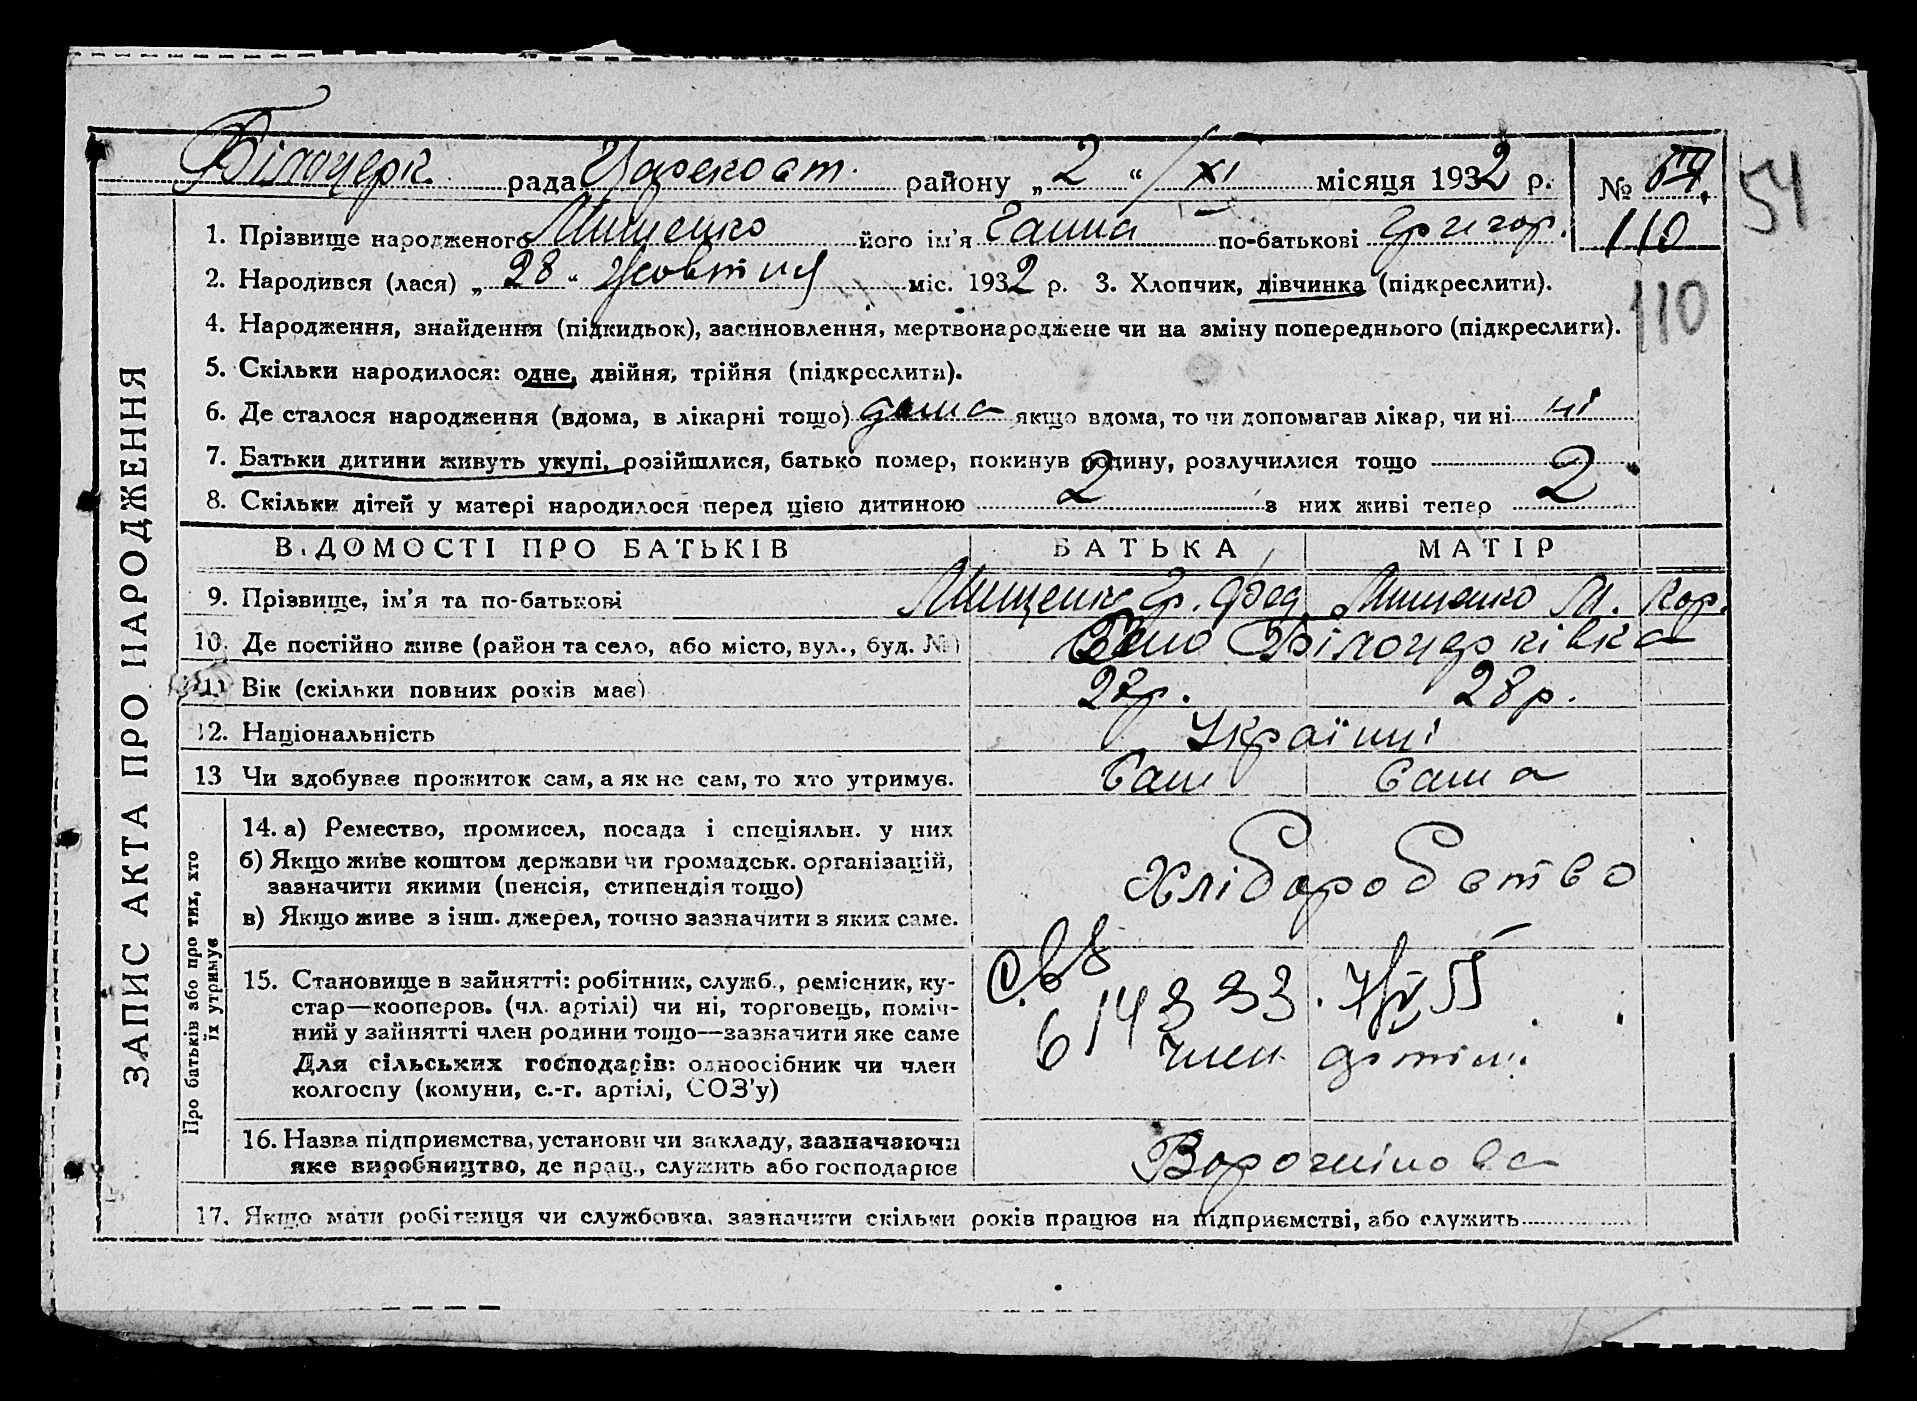 Білоцерк. рада Царекост. району „2“ / XI місяця 1932 р. №
54
110
1. Прізвище народженого Мищенко його ім'я Ганна по-батькові Григор.
2. Народився (лася) „28“ Жовтня міс. 1932 р. 3. Хлопчик, дівчинка (підкреслити).
110
4. Народження, знайдення (підкидьок), засиновлення, мертвонароджене чи на зміну попереднього (підкреслити).
5. Скільки народилося: одне, двійня, трійня (підкреслити).
6. Де сталося народження (вдома, в лікарні тощо) дома якщо вдома, то чи допомагав лікар, чи ні ні
7. Батьки дитини живуть укупі, розійшлися, батько помер, покинув родину, розлучилися тощо
8. Скільки дітей у матері народилося перед цією дитиною 2 з них живі тепер 2
ЗАПИС АКТА ПРО НАРОДЖЕННЯ
ВІДОМОСТІ ПРО БАТЬКІВ БАТЬКА МАТІР
9. Прізвище, ім'я та по-батькові Мищенко Гр. Фед. Мищенко М. Кор.
10. Де постійно живе (район та село, або місто, вул., буд. №) Село Білоцерківка
11. Вік (скільки повних років має) 27 р. 28 р.
12. Національність Українці
13 Чи здобуває прожиток сам, а як не сам, то хто утримує. Сам Сама
Про батьків або про тих, хто їх утримує
14. а) Ремество, промисел, посада і спеціяльн. у них
б) Якщо живе коштом держави чи громадськ. організацій,
зазначити якими (пенсія, стипендія тощо)
в) Якщо живе з інш. джерел, точно зазначити з яких саме.
Хліборобство
15. Становище в зайнятті: робітник, служб., ремісник, ку-
стар—кооперов. (чл. артілі) чи ні, торговець, поміч-
ний у зайнятті член родини тощо—зазначити яке саме
Для сільських господарів: одноосібник чи член
колгоспу (комуни, с.-г. артілі, СОЗ'у)
член артіли.
16. Назва підприємства, установи чи закладу, зазначаючи
яке виробництво, де прац., служить або господарює
Ворошілова
17. Якщо мати робітниця чи службовка, зазначити скільки років працює на підприємстві, або служить